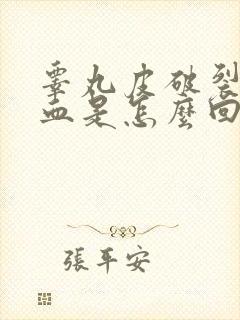 睾丸皮破裂
血是怎麼回
張平安